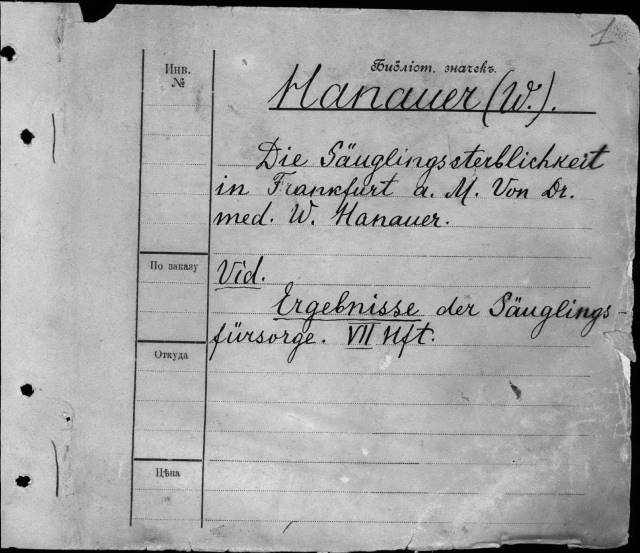 1
Инв.
№
Библіот. значекъ.
Hanauer (W.).
Die Säuglingssterblichkeit
in Frankfurt a. M. Von Dr.
med. W. Hanauer.
По заказу
Vid.
Ergebnisse der Säuglings-
fürsorge. VII Hft.
Откуда
Цѣна